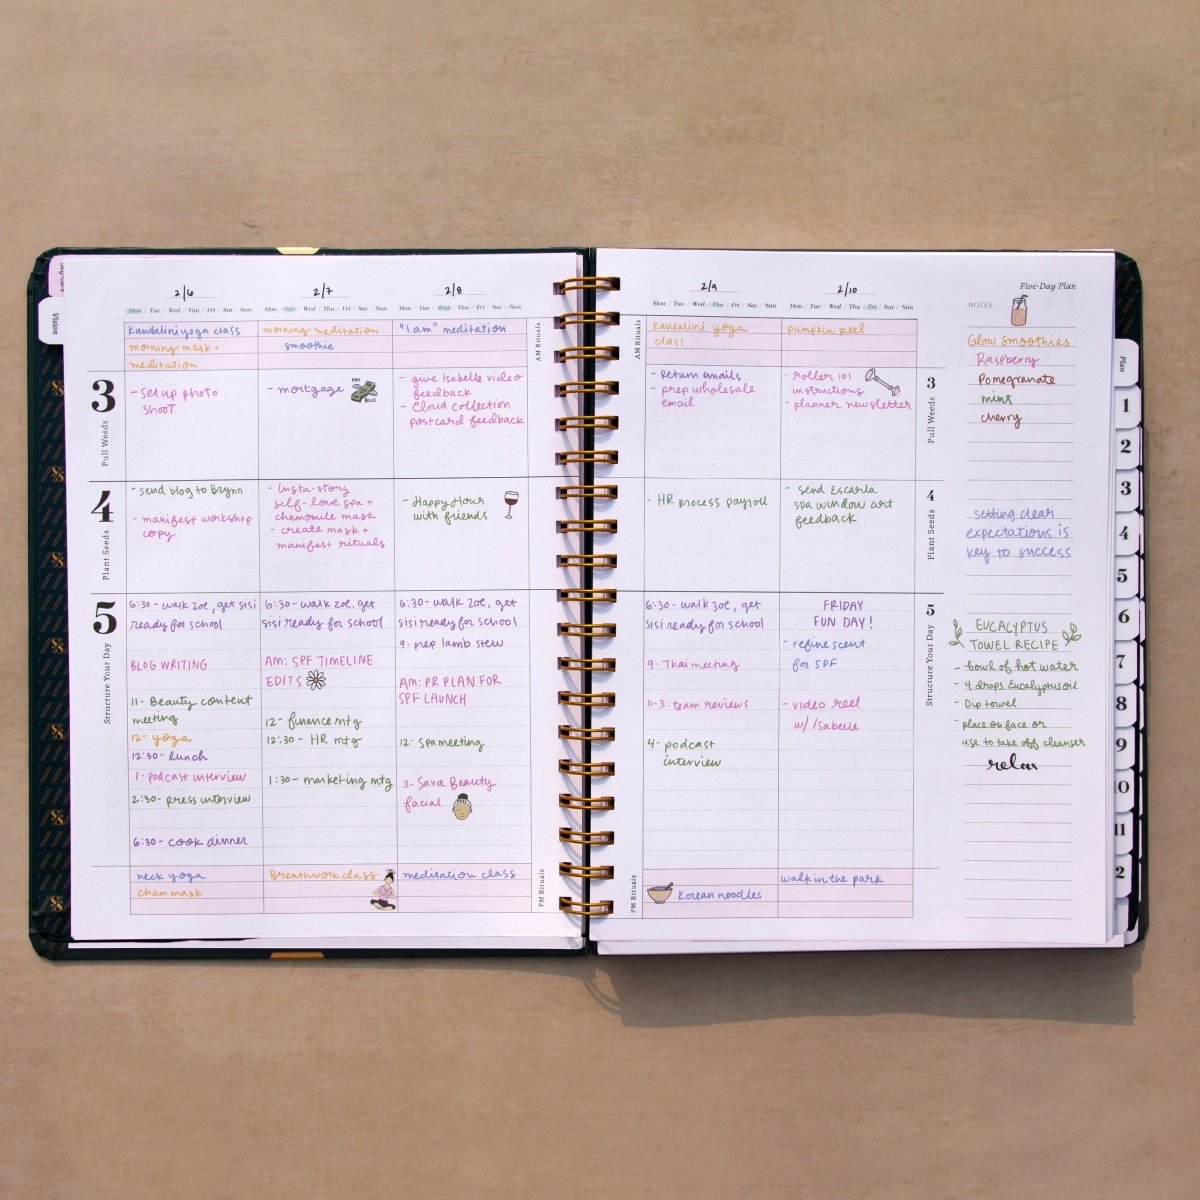 Vision
2/6
Mon / Tue / Wed / Thu / Fri / Sat / Sun
kundalini yoga class
morning mask +
meditation
2/7
Mon / Tue / Wed / Thu / Fri / Sat / Sun
morning meditation
smoothie
2/8
Mon / Tue / Wed / Thu / Fri / Sat / Sun
"I am" meditation
AM Rituals
3
Pull Weeds
- Set up photo
shoot
- mortgage
PAY
BILLS
- give Isabelle video
feedback
- Cloud collection
postcard feedback
4
Plant Seeds
- send blog to Brynn
- manifest workshop
copy
- Insta-story
self-love spa +
chamomile mask
- create mask +
manifest rituals
- Happy Hour
with friends
5
Structure Your Day
6:30- walk zoe, get sisi
ready for school
BLOG WRITING
11- Beauty content
meeting
12- yoga
12:30- lunch
1- podcast interview
2:30- press interview
6:30- cook dinner
6:30- walk zoe, get
sisi ready for school
AM: SPF TIMELINE
EDITS
12- finance mtg
12:30- HR mtg
1:30- marketing mtg
6:30- walk zoe, get
sisi ready for school
9- prep lamb stew
AM: PR PLAN FOR
SPF LAUNCH
12- spa meeting
3- Sava Beauty
facial
neck yoga
cham mask
Breathwork class
meditation class
PM Rituals
2/9
Mon / Tue / Wed / Thu / Fri / Sat / Sun
kundalini yoga
class
2/10
Mon / Tue / Wed / Thu / Fri / Sat / Sun
pumpkin peel
AM Rituals
- Return emails
- prep wholesale
email
- roller 101
instructions
- planner newsletter
3
Pull Weeds
- HR process payroll
- send Escarla
spa window art
feedback
4
Plant Seeds
6:30- walk zoe, get
sisi ready for school
9- Thai meeting
11-3: team reviews
4- podcast
interview
FRIDAY
FUN DAY!
- refine scent
for SPF
- video reel
w/ Isabelle
5
Structure Your Day
PM Rituals
Korean noodles
walk in the park
Five-Day Plan
NOTES
Glow smoothies
Raspberry
Pomegranate
mint
cherry
setting clear
expectations is
key to success
EUCALYPTUS
TOWEL RECIPE
- bowl of hot water
- 4 drops Eucalyptus oil
- Dip towel
- place on face or
use to take off cleanser
relax
Plan
1
2
3
4
5
6
7
8
9
10
11
2